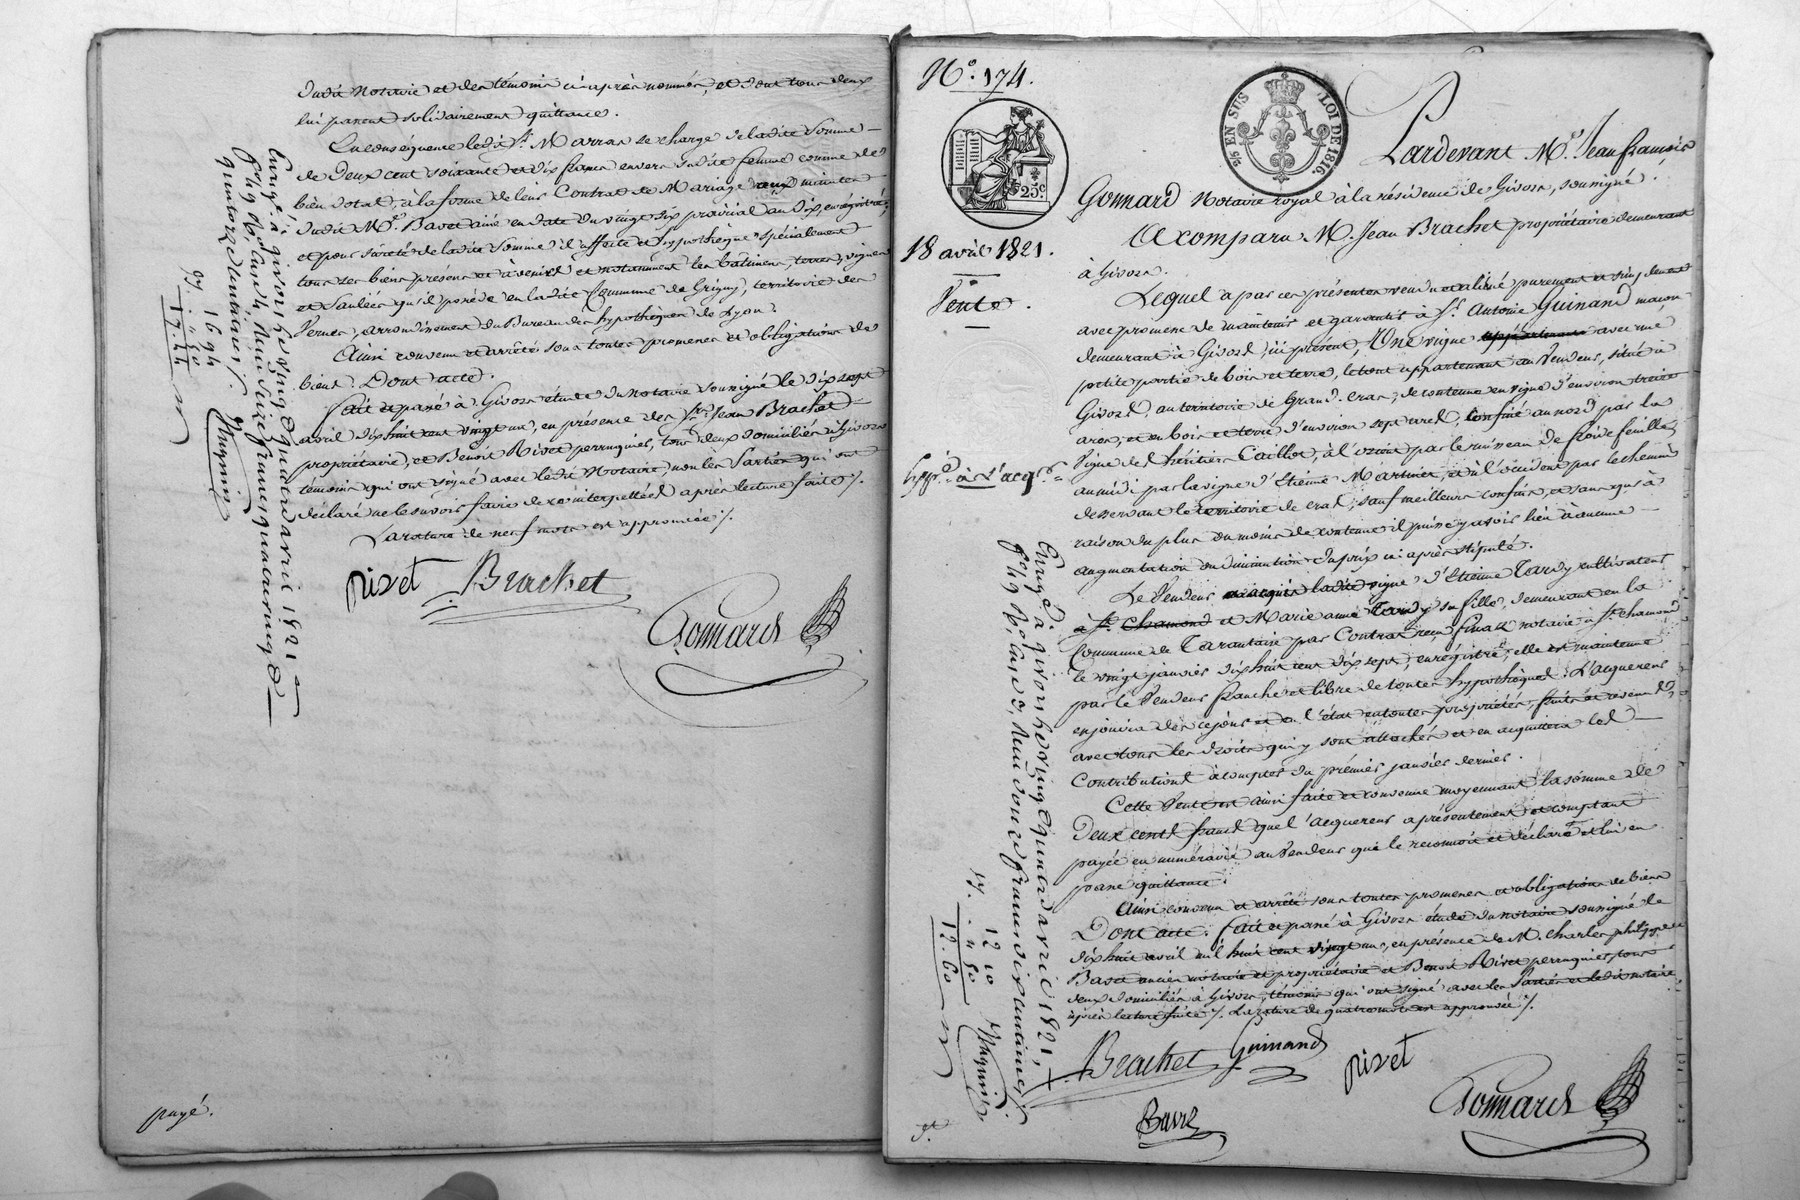 dudit Notaire et des témoins ci-après nommés, et dont tous deux
lui passent solidairement quittance.
En conséquence ledit Sr. Marras se charge de ladite Somme
de Deux cent soixante et dix francs envers sadite femme comme de
bien dotal, à la forme de leur Contrat de Mariage reçu
dudit Me. Bavet ainé en date du vingt six prairial an dix, enregistré,
et pour sureté de ladite somme il affecte et hypothèque spécialement
tous ses biens présens et à venir et notamment les bâtimens, terres, vignes
et Saulées qu'il possède en ladite Commune de Grigny, territoire des
arrondissement du Bureau des hypothèques de Lyon.
Ainsi convenu et arrêté sous toutes promesses et obligations de
biens. Dont acte.
Fait et passé à Givors étude du notaire soussigné le dix sept
avril dix huit cent vingt un, en présence des Srs. Jean Brachet
propriétaire, et Benoit Rivet perruquier, tous deux domiciliés à Givors
témoins qui ont signé avec ledit Notaire, non les Parties qui ont
déclaré ne le savoir faire de ce interpellées après lecture faite ./.
La rature de neuf mots est approuvée ./.
rivet Brachet
Gonnard
Enregé. à givors le vingt quatre avril 1821
quatorze centimes.
16 94
" 50
17 44
payé.
No. 174.
25c.
18 avril 1821.
Vente.
5/% EN SUS LOI DE 1816.
Pardevant Me. Jean françois
Gonnard Notaire royal à la résidence de Givors, soussigné.
A comparu M. Jean Brachet propriétaire demeurant
à Givors.
Lequel a par ces présentes vendu et aliéné purement et simplement
avec promesse de maintenir et garantir à Sr. Antoine Guinand maçon
demeurant à Givors, ici présent, Une vigne avec une
petite partie de bois et terre, le tout appartenant au Vendeur, situé à
Givors, au territoire de Grand-cras, de contenue en vigne d'environ treize
ares, et en bois et terre d'environ sept ares, confiné au nord par la
Vigne des héritiers Caillot, à l'orient par le ruisseau de froide feuille,
au midi par la vigne d'Etienne Martinet, et à l'occident par le chemin
desservant le territoire de cras, sauf meilleurs confins, et sans qu'à
raison du plus ou moins de contenue il puisse y avoir lieu à aucune
augmentation ou diminution du prix ci après stipulé.
Le Vendeur a acquis ladite vigne d'Etienne Tardy cultivateur
à St. Chamond et Marie anne Tardy sa fille, demeurant en la
Commune de Tarantaise par Contrat reçu finaz notaire à St. chamond
le vingt janvier dix huit cent dix sept, enregistré, elle est maintenue
par le Vendeur franche et libre de toutes hypothèques. L'acquereur
en jouira dès ce jour en l'état en toutes propriétés, fruits et revenus,
avec tous les droits qui y sont attachés et en acquittera les
Contributions à compter du premier janvier dernier.
Cette Vente est ainsi faite et convenue moyennant la somme de
Deux cents francs que l'acquereur a présentement et comptant
payée en numéraire au Vendeur qui le reconnoit et déclare et lui en
passe quittance.
Ainsi convenu et arrêté sous toutes promesses et obligations de biens
Dont acte. Fait et passé à Givors étude du notaire soussigné le
dix huit avril mil huit cent vingt un, en présence de M. Charles philippe
Bavet ancien notaire et propriétaire et Benoit Rivet perruquier, tous
deux domiciliés à Givors, témoins qui ont signé avec les Parties et ledit notaire
après lecture faite ./. La rature de quatre mots est approuvée ./.
Enregé. à givors le vingt quatre avril 1821,
12 10
" 50
12 60
Brachet Guinand rivet
Gonnard